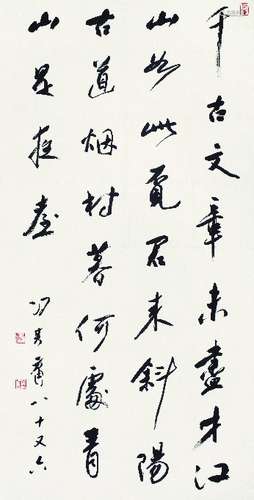 千古文章未盡才江
山如此覓君來斜陽
古道烟村暮何處青
山是夜臺
冯其庸八十又六